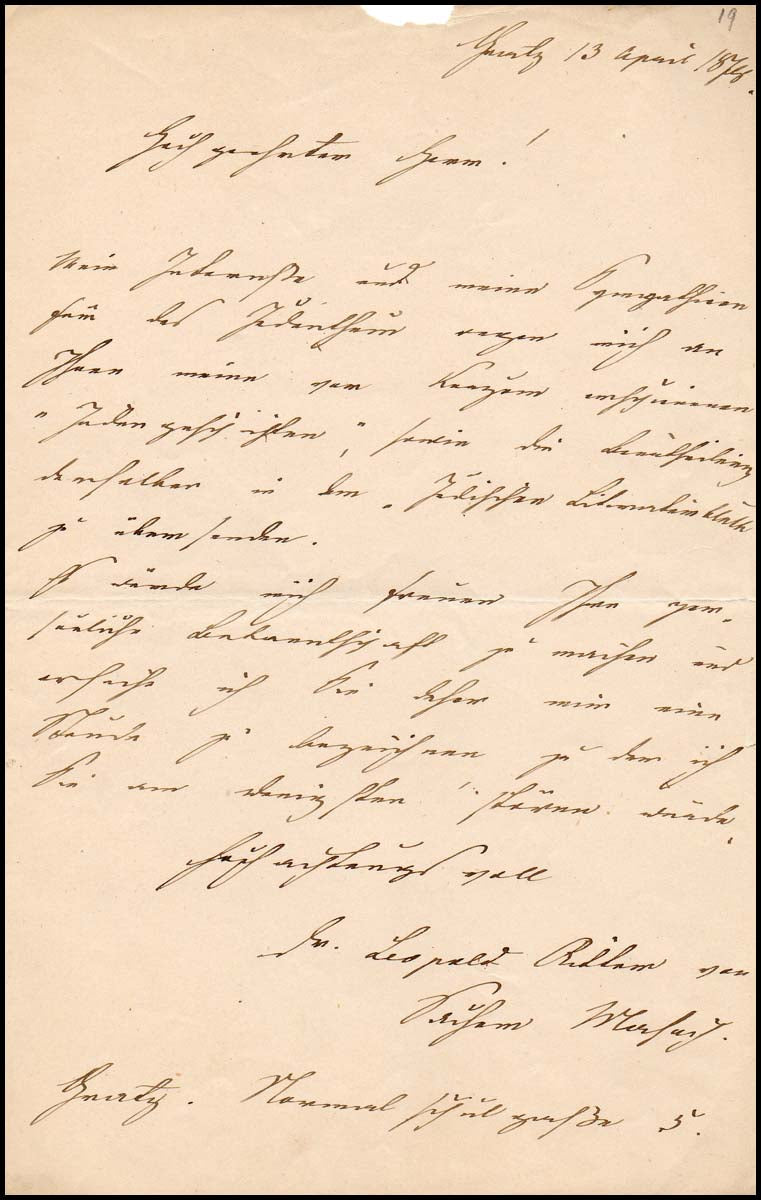 19
Gratz 13 April 1878.
Hochgeehrter Herr!
Mein Interesse und meine Sympathieen
für das Judenthum regen mich an
Ihnen meine vor Kurzem erschienenen
„Judengeschichten", sowie die Beurtheilung
derselben in dem „Jüdischen Literaturblatt
zu übersenden.
Es würde mich freuen Ihre per-
sönliche Bekanntschaft zu machen und
ersuche ich Sie daher mir eine
Stunde zu bezeichnen zu der ich
Sie am wenigsten stören würde.
Hochachtungsvoll
Dr. Leopold Ritter von
Sacher Masoch.
Gratz. Normalschulgasse 5.